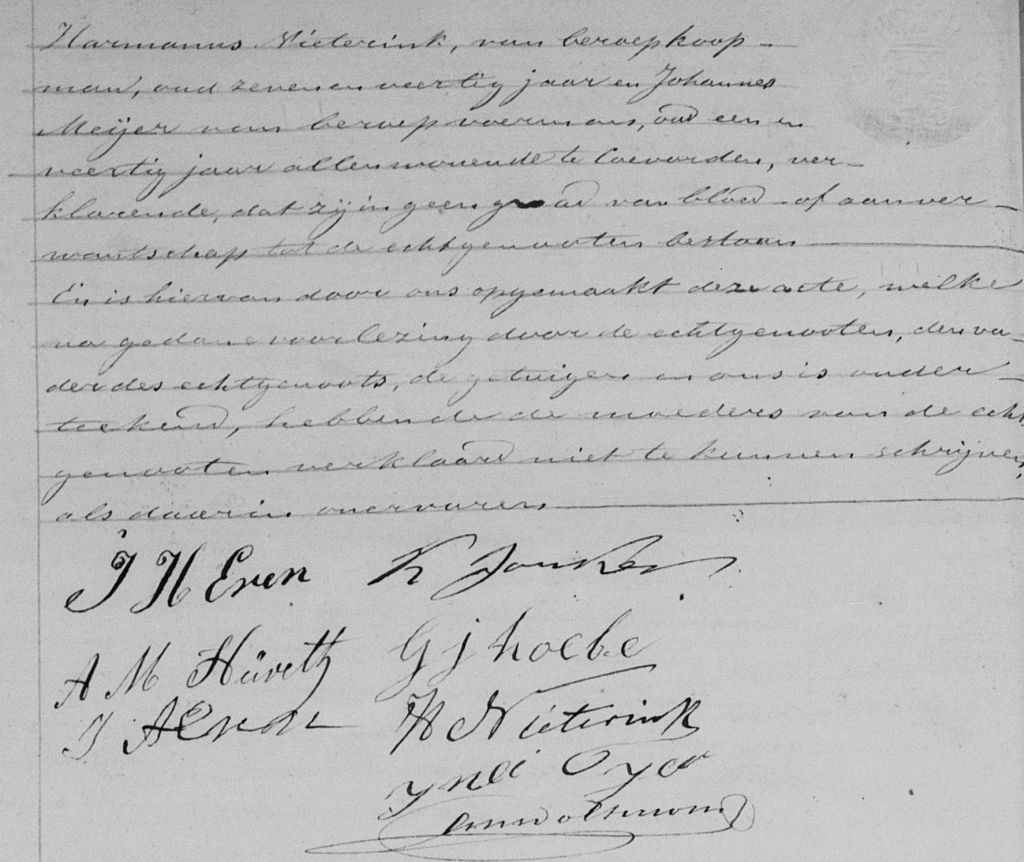 Harmannus Nieterink, van beroep koop-
man, oud zeven en veertig jaar en Johannes
Meijer van beroep voerman, oud een en
veertig jaar allen wonende te Coevorden, ver-
klarende, dat zij in geen graad van bloed- of aanver-
wantschap tot de echtgenooten bestaan
En is hiervan door ons opgemaakt deze acte, welke
na gedane voorlezing door de echtgenooten, den va-
der des echtgenoots, de getuigen en ons is onder-
teekend, hebbende de moeders van de echt
genooten verklaard niet te kunnen schrijven,
als daarin onervaren
J H Even K Jonker
A M Hüveth G J hoebe
J H Nieterink